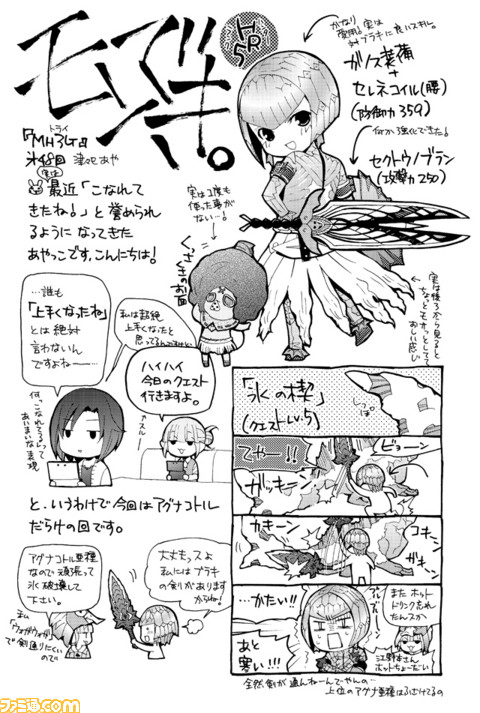 モンでき。
HR5
『MH3G』
トライ
氷海回 津山あや
最近「こなれて
きたね!」と誉められ
るように なってきた
あやっこです。こんにちは!
(実は)
かなり
使用。実は
対ブラキに良いスキル。
ガノス装備
+
セレネコイル(腰)
(防御力359)
何か強化できた!
セクトウノブラン
(攻撃力250)
実は1度も
使った事が
ない…!
くまのお面
実は後ろから見ると
ちょっとモサっとしてて
おしい感じ
…誰も
「上手くなったね」
とは絶対
言わないん
ですよね……
何って「こなれてる」って
あいまいな表現
私は超絶
上手くなったと
思ってるんですけど
ハイハイ
今日のクエスト
行きますよ。
スルー
と、いうわけで今回はアグナコトル
だらけの回です。
アグナコトル亜種
なので頑張って
氷破壊して
下さい。
大丈夫っスよ
私にはブラキ
の剣があります
からね!
「氷の楔」
(クエストLv.5)
しっぽ
てやー!!
ビョーン
ガッキーン
かきーン
コキーン
ガキーン
…かたい!!
あと
寒い!!!
また ホット
ドリンク忘れ
たんスか
江野本さん
ホットちょーだい
全然剣が通んねーんでやんの…
上位のアグナ亜種はふざけてるの
ファミ通.com